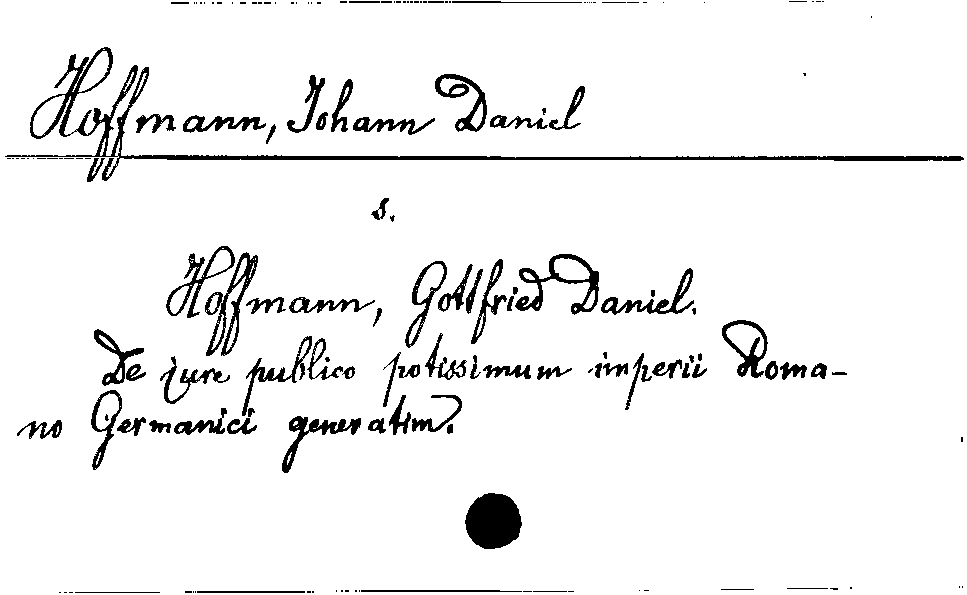 Hoffmann, Johann Daniel
s.
Hoffmann, Gottfried Daniel.
De iure publico potissimum imperii Roma-
no Germanici generatim.